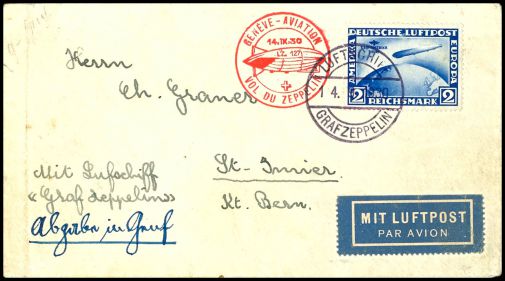 GENÈVE - AVIATION
14.IX.30
LZ 127
VOL DU ZEPPELIN
DEUTSCHE LUFTPOST
AMERIKA
EUROPA
2 REICHSMARK 2
LUFTSCHIFF
GRAFZEPPELIN
Herrn
Ch. Graner
St-Imier
Kt. Bern.
Mit Lufschiff
«Graf Zeppelin»
Abgabe in Genf
MIT LUFTPOST
PAR AVION